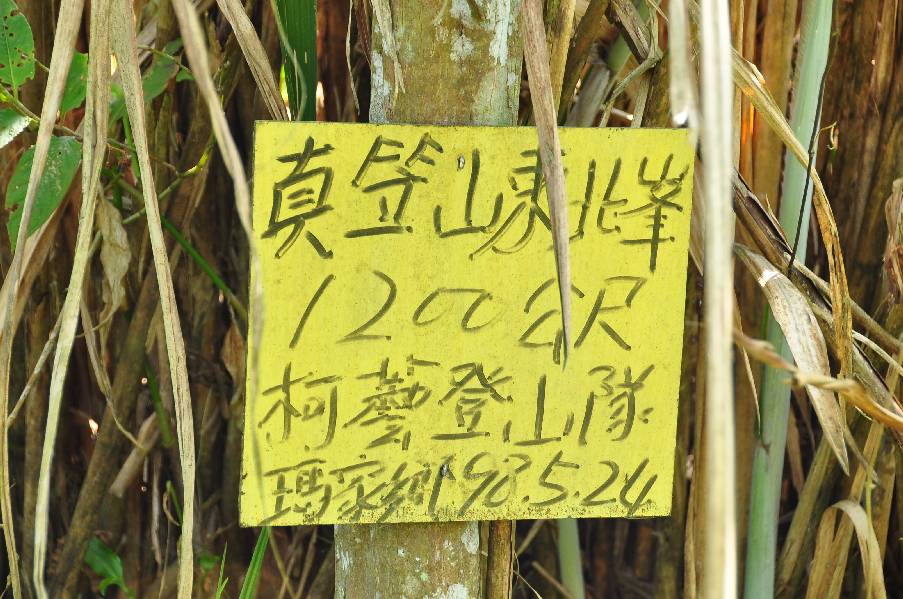 真笠山東北峯
1200公尺
柯藝登山隊
瑪家鄉 98.5.24